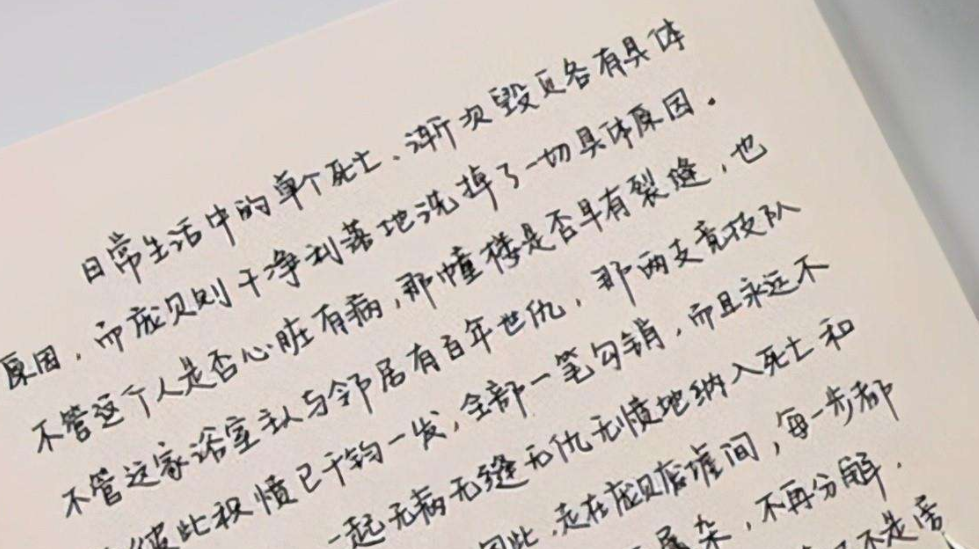 日常生活中的单个死亡、渐次毁页各有具体
原因，而庞贝则干净利落地洗掉了一切具体原因。
不管这个人是否心脏有病，那幢楼是否早有裂缝，也
不管这家浴室主人与邻居有百年世仇，那两支竞技队
彼此积愤已千钧一发，全部一笔勾销，而且永远不
一起无病无缝无仇无愤地纳入死亡和
因此，走在庞贝废墟间，每一步都
杂，不再分解，
不是旁